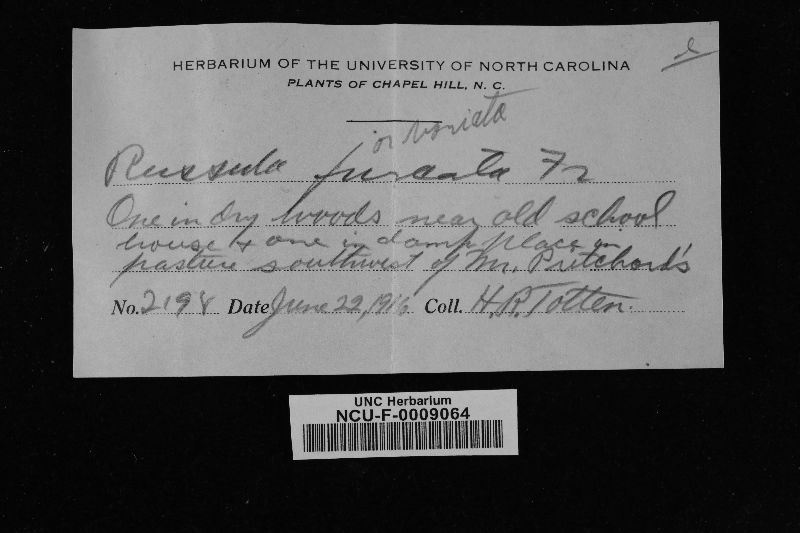 HERBARIUM OF THE UNIVERSITY OF NORTH CAROLINA
PLANTS OF CHAPEL HILL, N. C.
or variata
Russula furcata Fr
One in dry woods near old school
house & one in damp place in
pasture southwest of Mr. Pritchard's
No. 2198 Date June 22, 1916 Coll. H.R. Totten.
UNC Herbarium
NCU-F-0009064